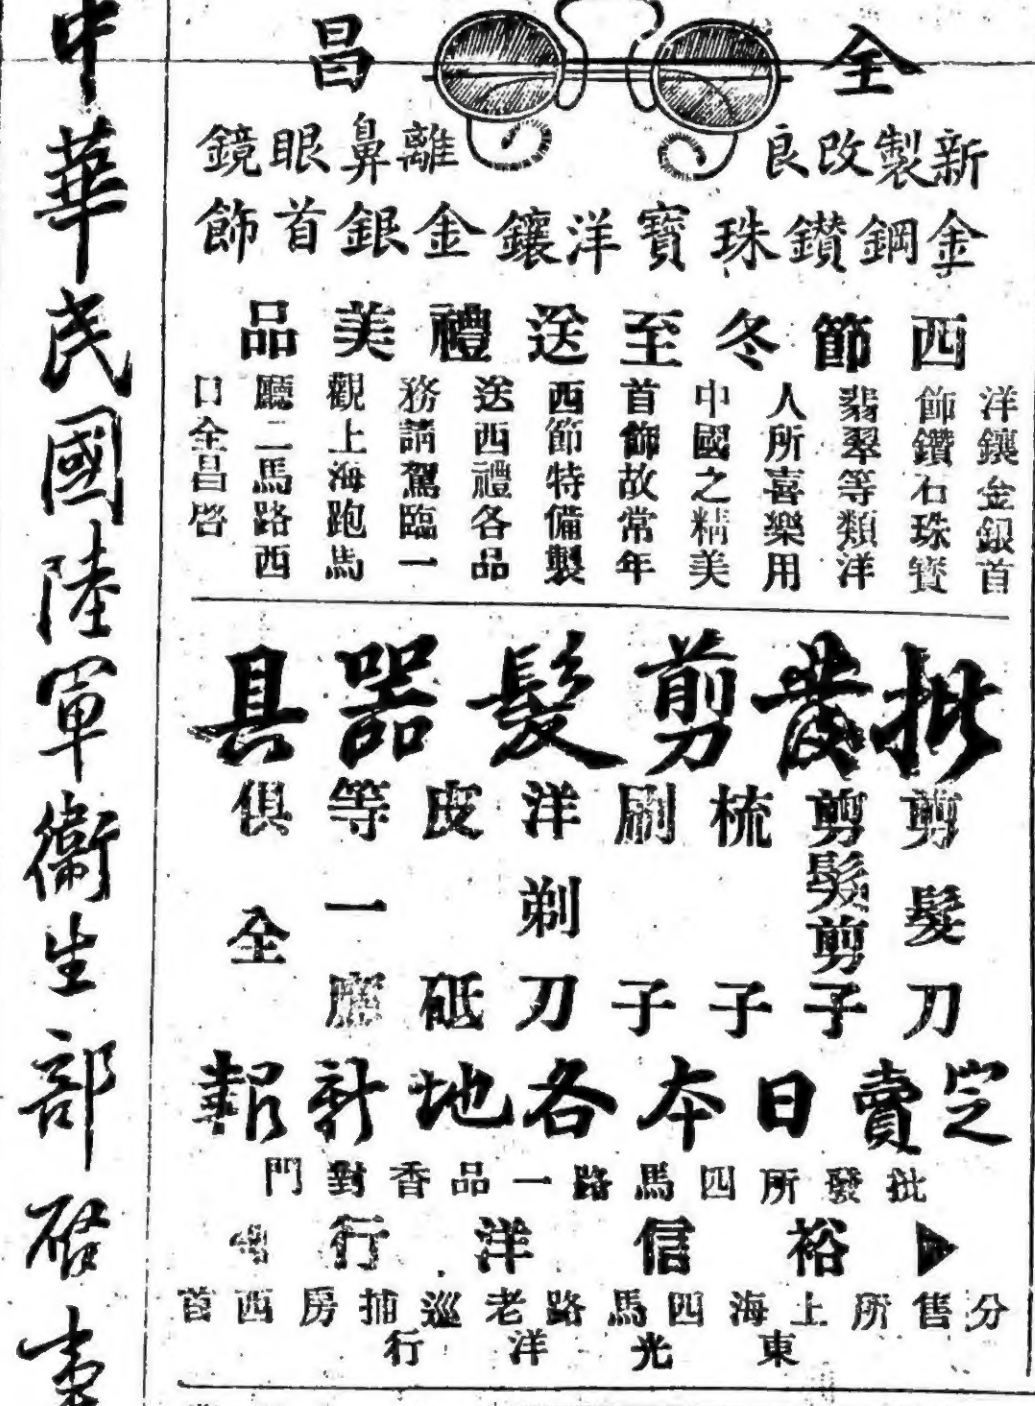 全昌
新製改良離鼻眼鏡
金鋼鑚珠寶洋鑲金銀首飾
西節冬至送禮美品
洋鑲金銀首
飾鑽石珠寶
翡翠等類洋
人所喜樂用
中國之精美
首飾故常年
西節特備製
送西禮各品
務請駕臨一
觀上海跑馬
廳二馬路西
口全昌啓
批發剪髮器具
剪髮刀
剪髮剪子
梳子
刷子
洋剃刀
皮砥
等一應
俱全
定賣日本各地新報
批發所四馬路一品香對門
裕信洋行
分售所上海四馬路老巡捕房西首
東光洋行
中華民國陸軍衞生部啓事